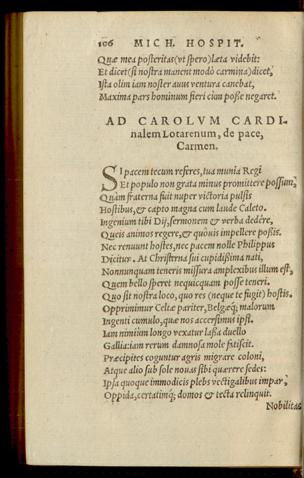 106 MICH. HOSPIT.
Quæ mea posteritas (vt spero) læta videbit:
Et dicet (si nostra manent modò carmina) dicet,
Ista olim iam noster auus ventura canebat,
Maxima pars hominum fieri cùm posse negaret.
AD CAROLVM CARDI-
nalem Lotarenum, de pace,
Carmen.
SI pacem tecum referes, tua munia Regi
Et populo non grata minus promittere possum,
Quàm fraterna fuit nuper victoria pulsis
Hostibus, & capto magna cum laude Caleto.
Ingenium tibi Dij, sermonem & verba dedêre,
Queis animos regere, & quouis impellere possis.
Nec renuunt hostes, nec pacem nolle Philippus
Dicitur. At Christerna sui cupidißima nati,
Nonnunquam teneris missura amplexibus illum est,
Quem bello speret nequicquam posse teneri.
Quo sit nostra loco, quo res (neque te fugit) hostis.
Opprimimur Celtæ pariter, Belgæq; malorum
Ingenti cumulo, quæ nos accersimus ipsi.
Iam nimiùm longo vexatur lassa duello
Gallia: iam rerum damnosa mole fatiscit.
Præcipites coguntur agris migrare coloni,
Atque alio sub sole nouas sibi quærere sedes:
Ipsa quoque immodicis plebs vectigalibus impar,
Oppida, certatimq; domos & tecta relinquit.
Nobilitas